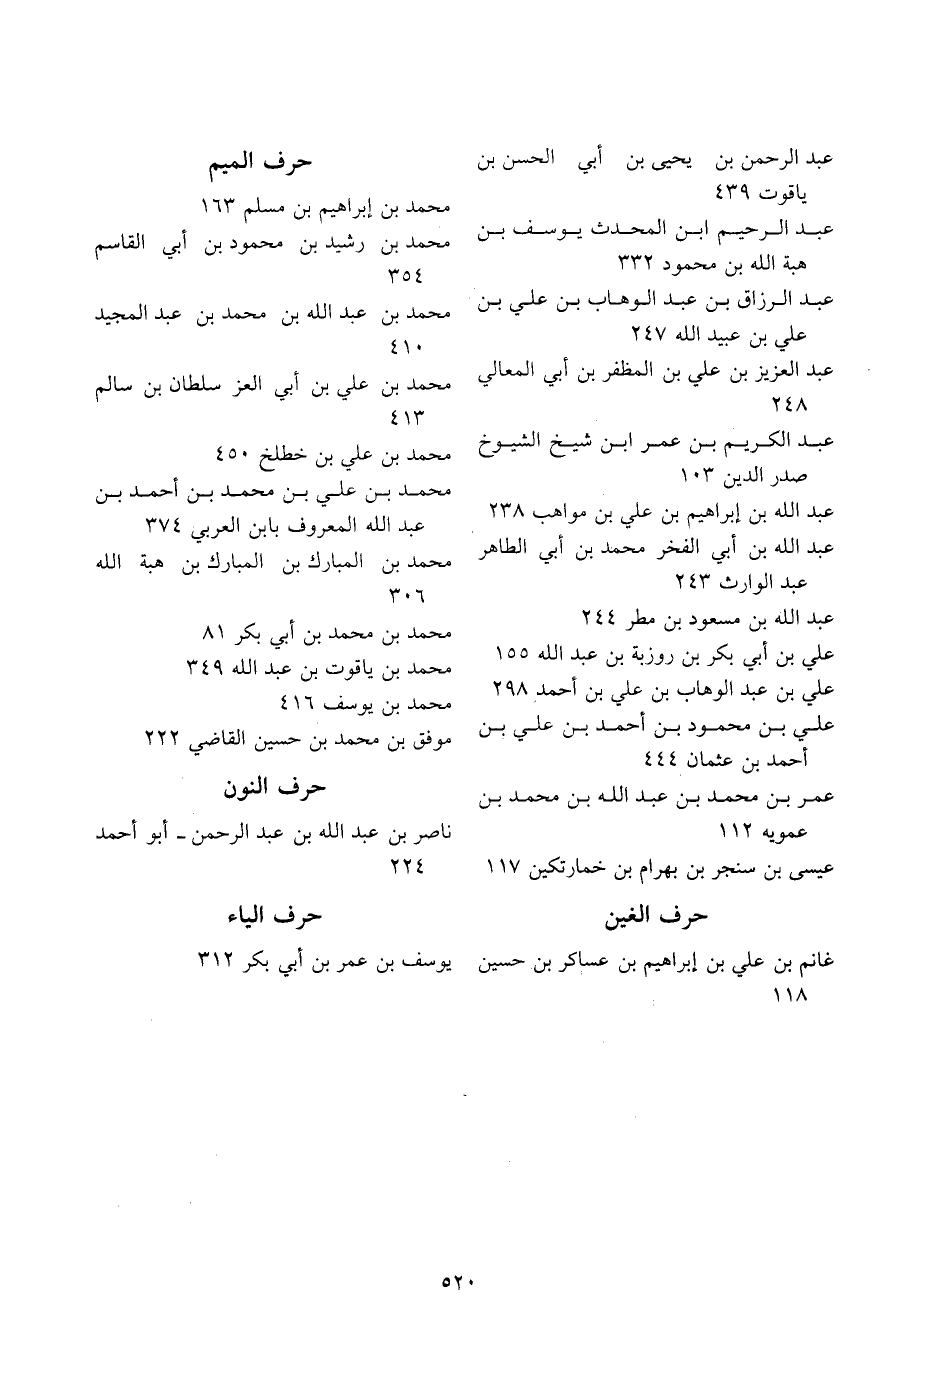 عبد الرحمن بن يحيى بن أبي الحسن بن
ياقوت ٤٣٩
عبد الرحيم ابن المحدث يوسف بن
هبة الله بن محمود ٣٣٢
عبد الرزاق بن عبد الوهاب بن علي بن
علي بن عبيد الله ٢٤٧
عبد العزيز بن علي بن المظفر بن أبي المعالي
٢٤٨
عبد الكريم بن عمر ابن شيخ الشيوخ
صدر الدين ١٠٣
عبد الله بن إبراهيم بن علي بن مواهب ٢٣٨
عبد الله بن أبي الفخر محمد بن أبي الطاهر
عبد الوارث ٢٤٣
عبد الله بن مسعود بن مطر ٢٤٤
علي بن أبي بكر بن روزبة بن عبد الله ١٥٥
علي بن عبد الوهاب بن علي بن أحمد ٢٩٨
علي بن محمود بن أحمد بن علي بن
أحمد بن عثمان ٤٤٤
عمر بن محمد بن عبد الله بن محمد بن
عمويه ١١٢
عيسى بن سنجر بن بهرام بن خمارتكين ١١٧
حرف الغين
غانم بن علي بن إبراهيم بن عساكر بن حسين
١١٨
حرف الميم
محمد بن إبراهيم بن مسلم ١٦٣
محمد بن رشيد بن محمود بن أبي القاسم
٣٥٤
محمد بن عبد الله بن محمد بن عبد المجيد
٤١٠
محمد بن علي بن أبي العز سلطان بن سالم
٤١٣
محمد بن علي بن خطلخ ٤٥٠
محمد بن علي بن محمد بن أحمد بن
عبد الله المعروف بابن العربي ٣٧٤
محمد بن المبارك بن المبارك بن هبة الله
٣٠٦
محمد بن محمد بن أبي بكر ٨١
محمد بن ياقوت بن عبد الله ٣٤٩
محمد بن يوسف ٤١٦
موفق بن محمد بن حسين القاضي ٢٢٢
حرف النون
ناصر بن عبد الله بن عبد الرحمن ـ أبو أحمد
٢٢٤
حرف الياء
يوسف بن عمر بن أبي بكر ٣١٢
٥٢٠